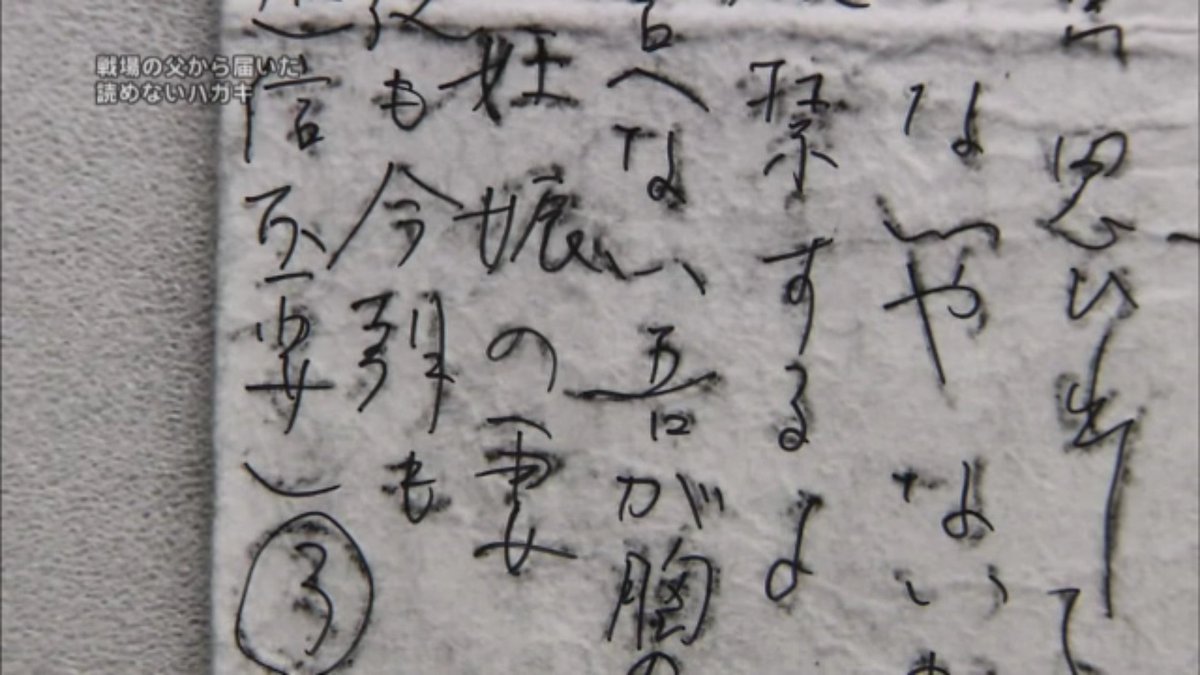 戦場の父から届いた
読めないハガキ
思ひ出して
ないやない
するよ
へない吾が胸の
妊娠の妻
も今引も
信不要)③